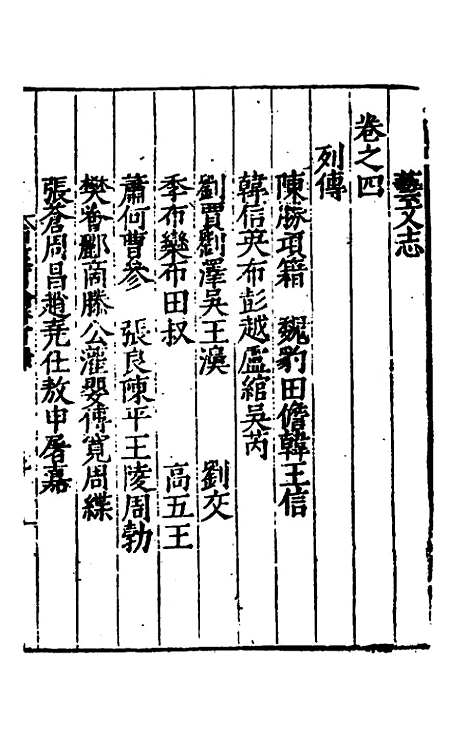 藝文志
卷之四
列傳
陳勝項籍　魏豹田儋韓王信
韓信英布彭越盧綰吳芮
劉賈劉澤吳王濞　劉交
季布欒布田叔　高五王
蕭何曹參　張良陳平王陵周勃
樊噲酈商滕公灌嬰傅寬周緤
張蒼周昌趙堯任敖申屠嘉